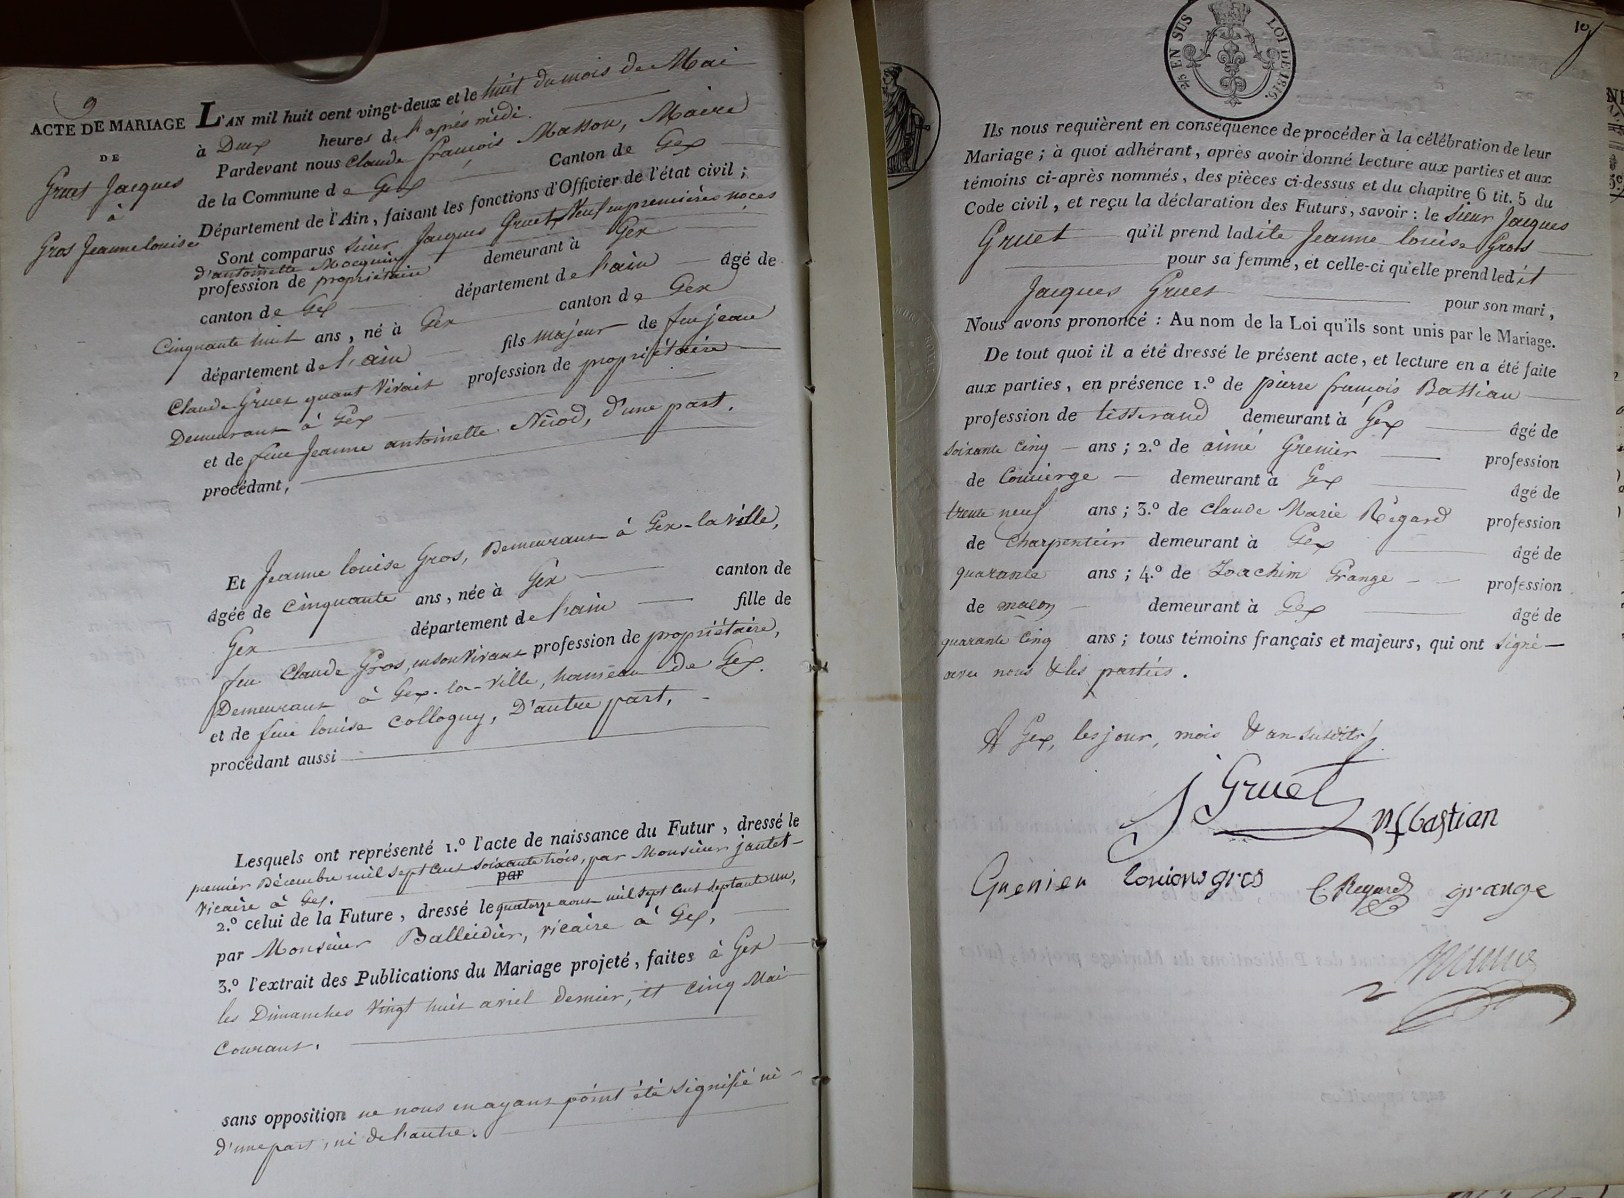 9
ACTE DE MARIAGE
DE
Gruet Jacques
à
Gros Jeanne louise
L'AN mil huit cent vingt-deux et le huit du mois de Mai
à Deux heures de l'après midi.
Pardevant nous Claude françois Masson, Maire
de la Commune de Gex Canton de Gex
Département de l'Ain, faisant les fonctions d'Officier de l'état civil ;
Sont comparus Sieur Jacques Gruet, Veuf en premières noces
d'antoinette
profession de propriétaire demeurant à Gex
canton de Gex département de l'ain âgé de
Cinquante huit ans, né à Gex canton de Gex
département de l'ain fils majeur de feu jean
Claude Gruet quant Vivait profession de propriétaire
Demeurant à Gex
et de feue Jeanne antoinette Nérod, d'une part.
procédant,
Et Jeanne louise Gros, Demeurant à Gex-la-Ville,
âgée de Cinquante ans, née à Gex canton de
Gex département de l'ain fille de
feu Claude Gros, en son Vivant profession de propriétaire,
Demeurant à Gex-la-Ville, hameau de Gex.
et de feue louise Collogny, D'autre part,
procédant aussi
Lesquels ont représenté 1.º l'acte de naissance du Futur, dressé le
premier Décembre mil sept cent soixante trois, par Monsieur jantet
par
Vicaire à Gex.
2.º celui de la Future, dressé le quatorze aout mil sept cent septante un,
par Monsieur Balleidier, vicaire à Gex,
3.º l'extrait des Publications du Mariage projeté, faites à Gex
les Dimanches Vingt huit avriel dernier, et Cinq Mai
Courant.
sans opposition ne nous en ayant point été signifié ni
d'une part, ni de l'autre.
EN SUS
LOI DE 1816.
10
Ils nous requièrent en conséquence de procéder à la célébration de leur
Mariage ; à quoi adhérant, après avoir donné lecture aux parties et aux
témoins ci-après nommés, des pièces ci-dessus et du chapitre 6 tit. 5 du
Code civil, et reçu la déclaration des Futurs, savoir : le Sieur Jacques
Gruet qu'il prend ladite Jeanne louise Gros
pour sa femme, et celle-ci qu'elle prend ledit
Jacques Gruet pour son mari,
Nous avons prononcé : Au nom de la Loi qu'ils sont unis par le Mariage.
De tout quoi il a été dressé le présent acte, et lecture en a été faite
aux parties, en présence 1.º de pierre françois Bastian
profession de tisserand demeurant à Gex âgé de
soixante Cinq ans ; 2.º de aimé Grenier profession
de Concierge demeurant à Gex âgé de
trente neuf ans ; 3.º de Claude Marie Régard profession
de Charpentier demeurant à Gex âgé de
quarante ans ; 4.º de Joachim Grange profession
de maçon demeurant à Gex âgé de
quarante Cinq ans ; tous témoins français et majeurs, qui ont signé
avec nous & les parties.
A Gex, les jour, mois & an susdits
J Gruet
Bastian
Grenier gros C. Regard grange